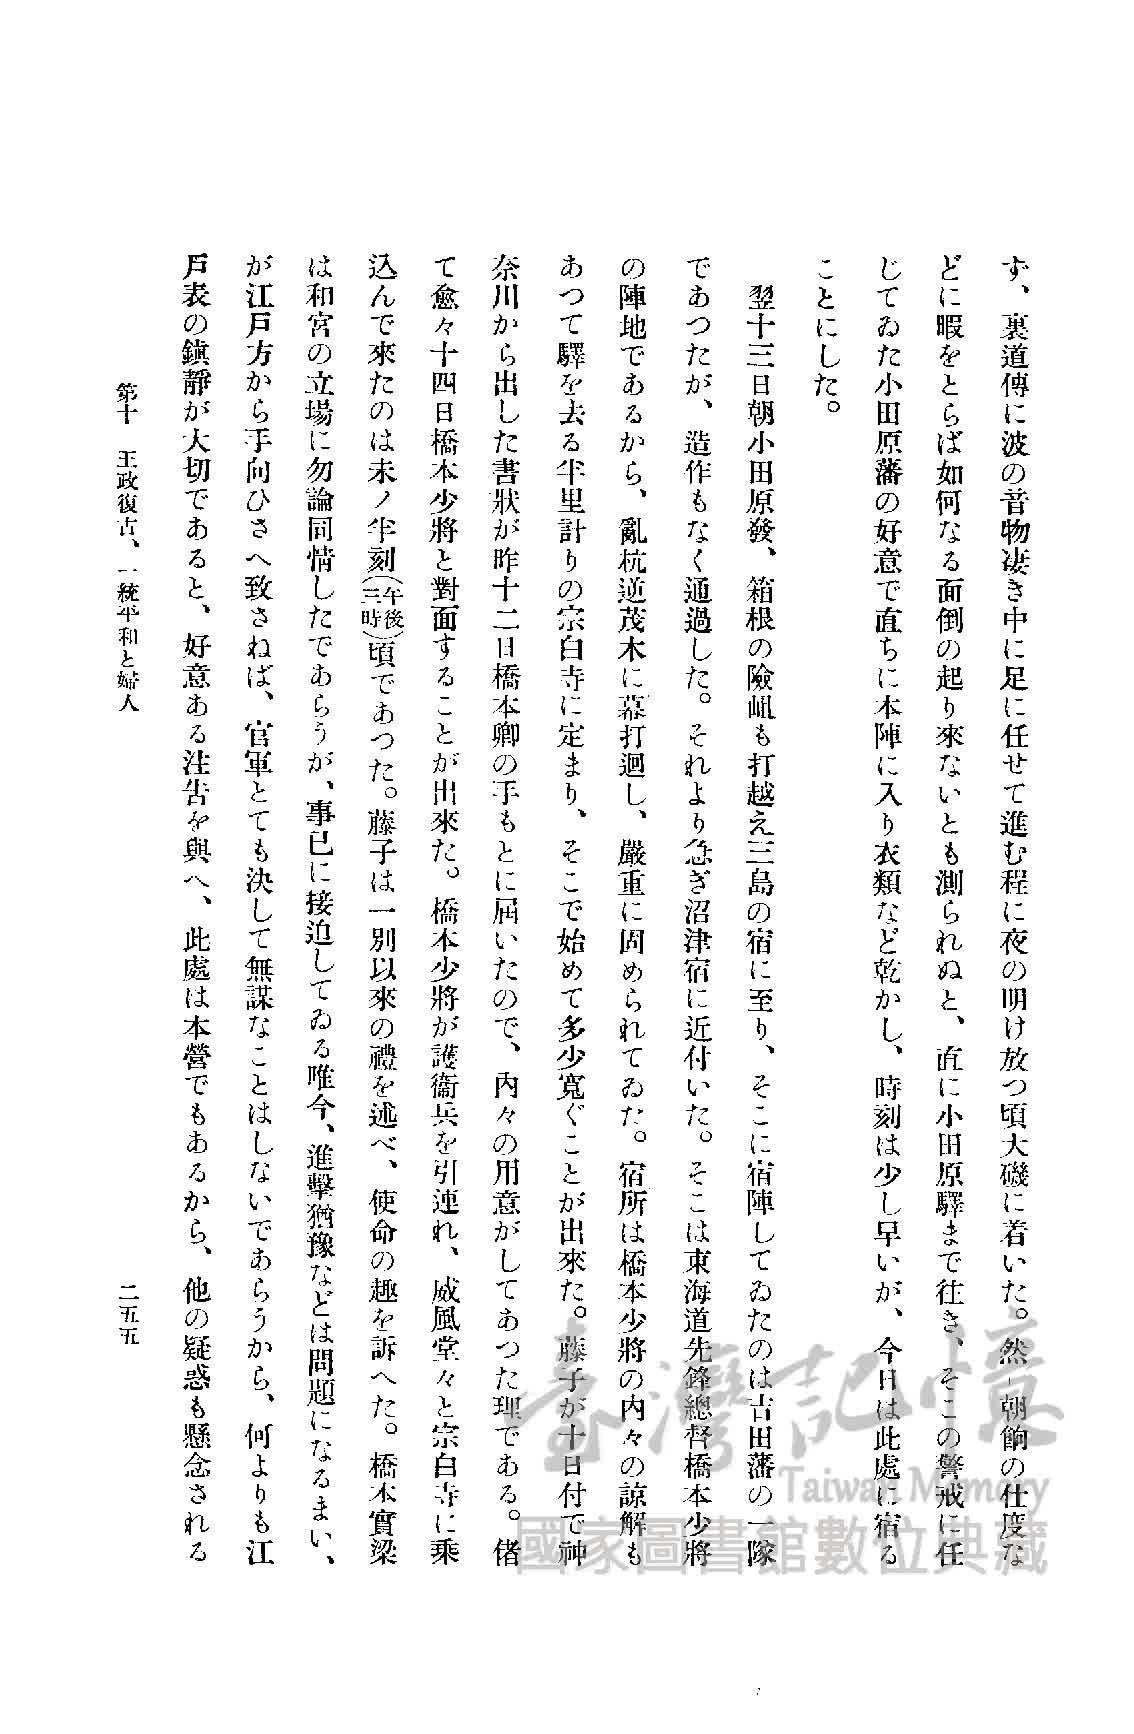 ず、裏道傳に波の音物凄き中に足に任せて進む程に夜の明け放つ頃大磯に着いた。然し朝餉の仕度な
どに暇をとらば如何なる面倒の起り來ないとも測られぬと、直に小田原驛まで往き、そこの警戒に任
じてゐた小田原藩の好意で直ちに本陣に入り衣類など乾かし、時刻は少し早いが、今日は此處に宿る
ことにした。
翌十三日朝小田原發、箱根の險岨も打越え三島の宿に至り、そこに宿陣してゐたのは吉田藩の一隊
であつたが、造作もなく通過した。それより急ぎ沼津宿に近付いた。そこは東海道先鋒總督橋本少將
の陣地であるから、亂杭逆茂木に幕打廻し、嚴重に固められてゐた。宿所は橋本少將の内々の諒解も
あつて驛を去る半里計りの宗白寺に定まり、そこで始めて多少寬ぐことが出來た。藤子が十日付で神
奈川から出した書狀が昨十二日橋本卿の手もとに屆いたので、内々の用意がしてあつた理である。偖
て愈々十四日橋本少將と對面することが出來た。橋本少將が護衞兵を引連れ、威風堂々と宗白寺に乘
込んで來たのは未ノ半刻(午後三時)頃であつた。藤子は一別以來の禮を述べ、使命の趣を訴へた。橋本實梁
は和宮の立場に勿論同情したであらうが、事已に接迫してゐる唯今、進擊猶豫などは問題になるまい、
が江戸方から手向ひさへ致さねば、官軍とても決して無謀なことはしないであらうから、何よりも江
戸表の鎭靜が大切であると、好意ある注告を與へ、此處は本營でもあるから、他の疑惑も懸念される
第十 王政復古、一統平和と婦人
二五五
臺灣記憶
Taiwan Memory
國家圖書館數位典藏